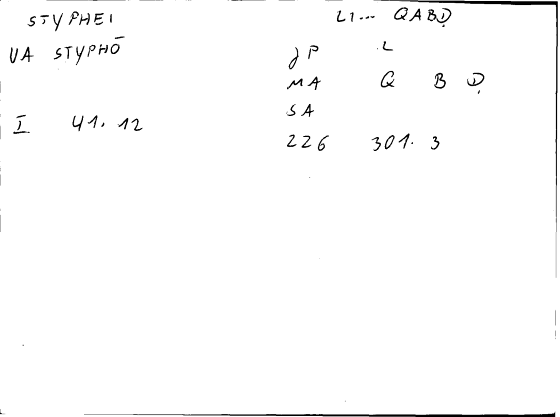 STYPHEI LI... QABḌ
VA STYPHŌ JP L
MA Q B Ḍ
SA
I 41.12 226 301.3